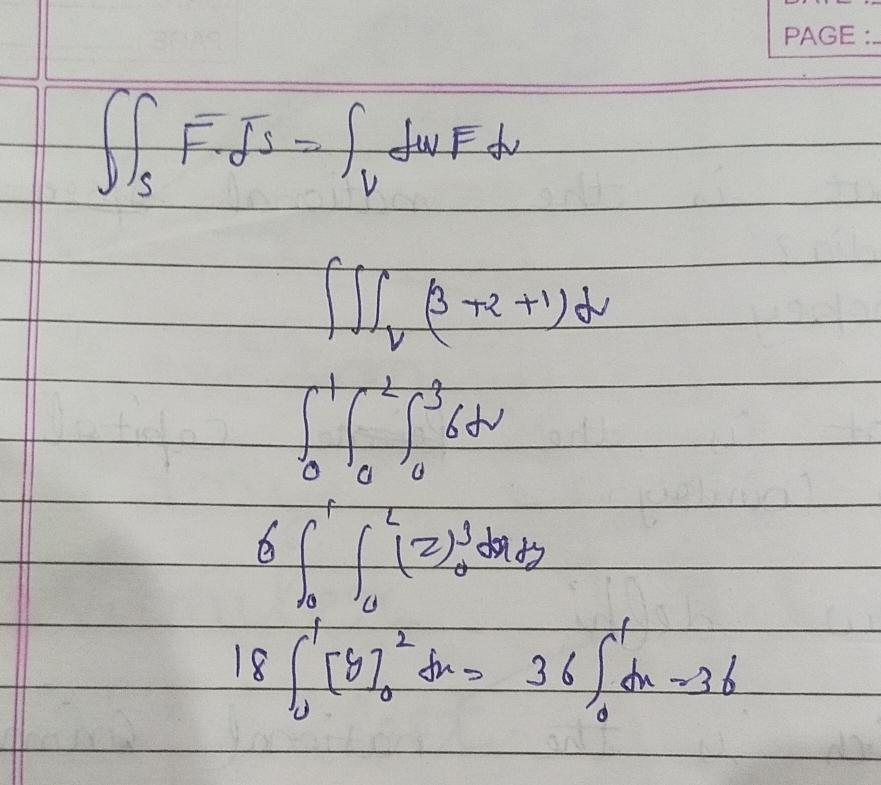 PAGE :-
∬_S F̄. d̄s = ∫_V div F dv
∭_V (3 +2 +1) dv
∫_0^1 ∫_0^2 ∫_0^3 6dv
6 ∫_0^1 ∫_0^2 (z)_0^3 dx dy
18 ∫_0^1 [y]_0^2 dx = 36 ∫_0^1 dx = 36